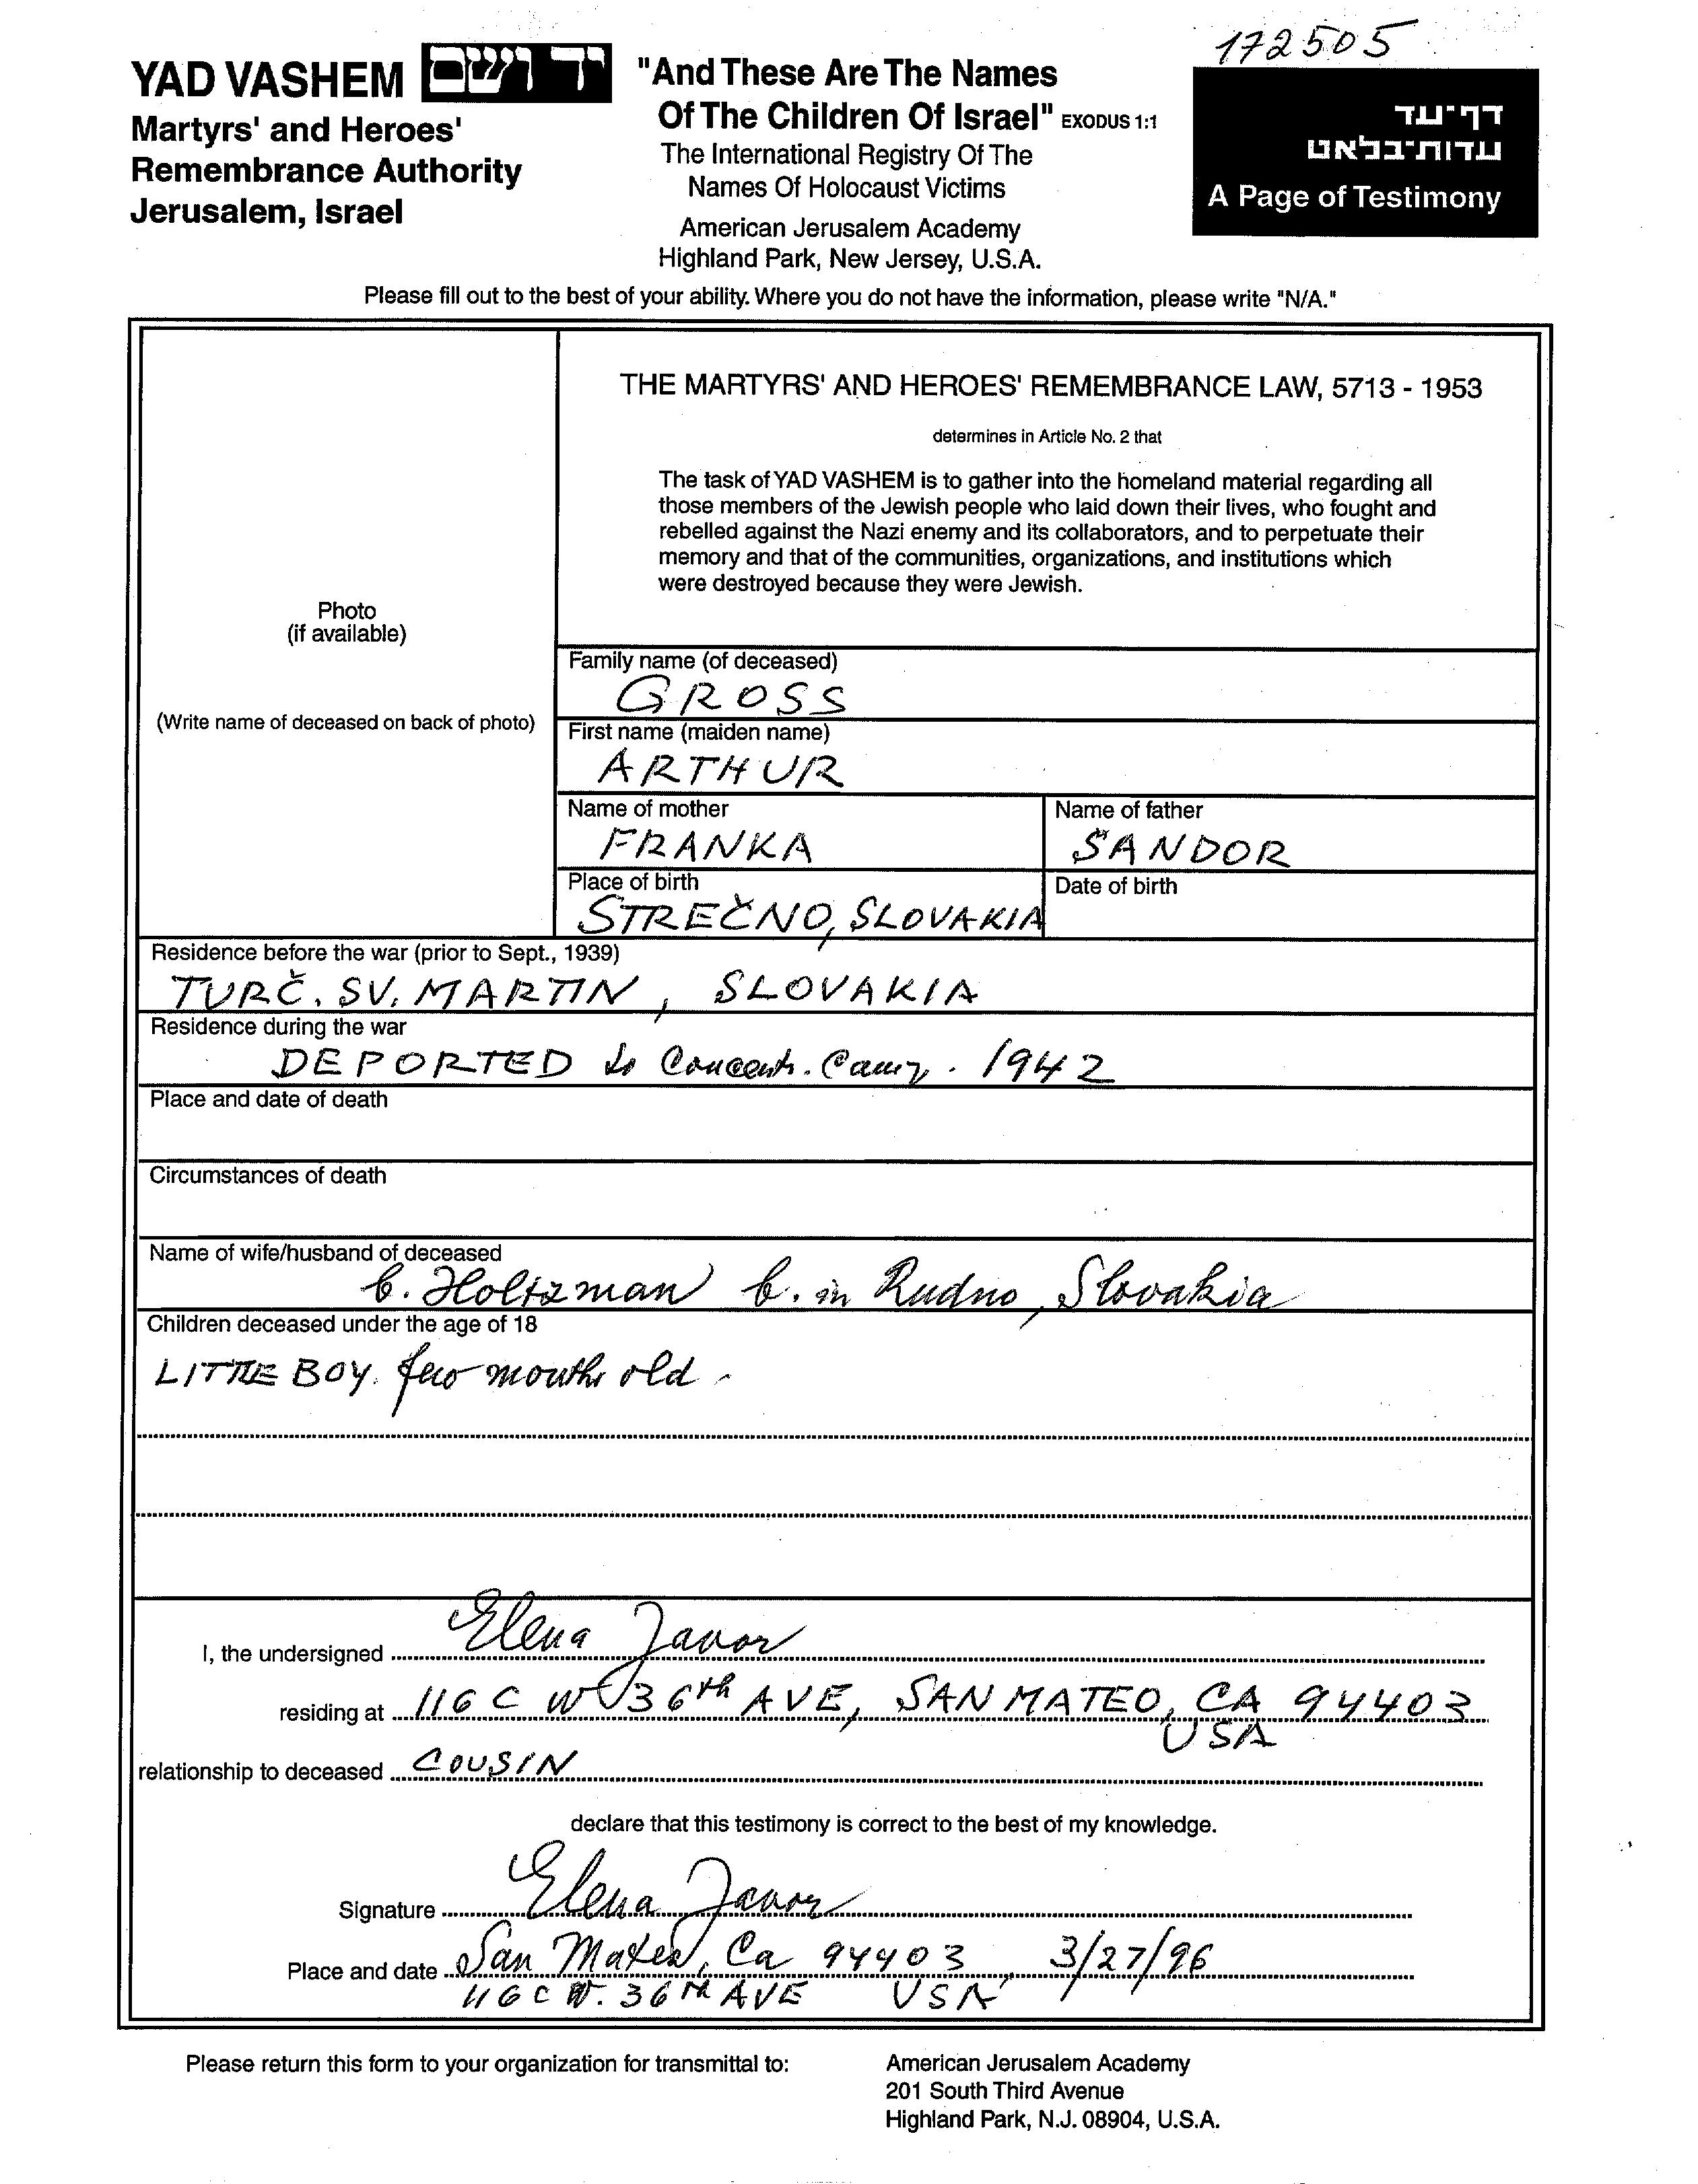 172505
YAD VASHEM יד ושם
Martyrs' and Heroes'
Remembrance Authority
Jerusalem, Israel
"And These Are The Names
Of The Children Of Israel" EXODUS 1:1
The International Registry Of The
Names Of Holocaust Victims
American Jerusalem Academy
Highland Park, New Jersey, U.S.A.
דף-עד
עדות-בלאט
A Page of Testimony
Please fill out to the best of your ability. Where you do not have the information, please write "N/A."
Photo
(if available)
(Write name of deceased on back of photo)
THE MARTYRS' AND HEROES' REMEMBRANCE LAW, 5713 - 1953
determines in Article No. 2 that
The task of YAD VASHEM is to gather into the homeland material regarding all
those members of the Jewish people who laid down their lives, who fought and
rebelled against the Nazi enemy and its collaborators, and to perpetuate their
memory and that of the communities, organizations, and institutions which
were destroyed because they were Jewish.
Family name (of deceased)
GROSS
First name (maiden name)
ARTHUR
Name of mother
FRANKA
Name of father
ŠANDOR
Place of birth
STREČNO, SLOVAKIA
Date of birth
Residence before the war (prior to Sept., 1939)
TURČ. SV. MARTIN, SLOVAKIA
Residence during the war
DEPORTED to Concentr. Camp. 1942
Place and date of death
Circumstances of death
Name of wife/husband of deceased
b. Holtzman b. in Rudno, Slovakia
Children deceased under the age of 18
LITTLE BOY. few months old -
I, the undersigned Elena Javor
residing at 116 C W 36th AVE, SAN MATEO, CA 94403
USA
relationship to deceased COUSIN
declare that this testimony is correct to the best of my knowledge.
Signature Elena Javor
Place and date San Mateo, Ca 94403, 3/27/96
116 C W. 36th AVE USA
Please return this form to your organization for transmittal to:
American Jerusalem Academy
201 South Third Avenue
Highland Park, N.J. 08904, U.S.A.